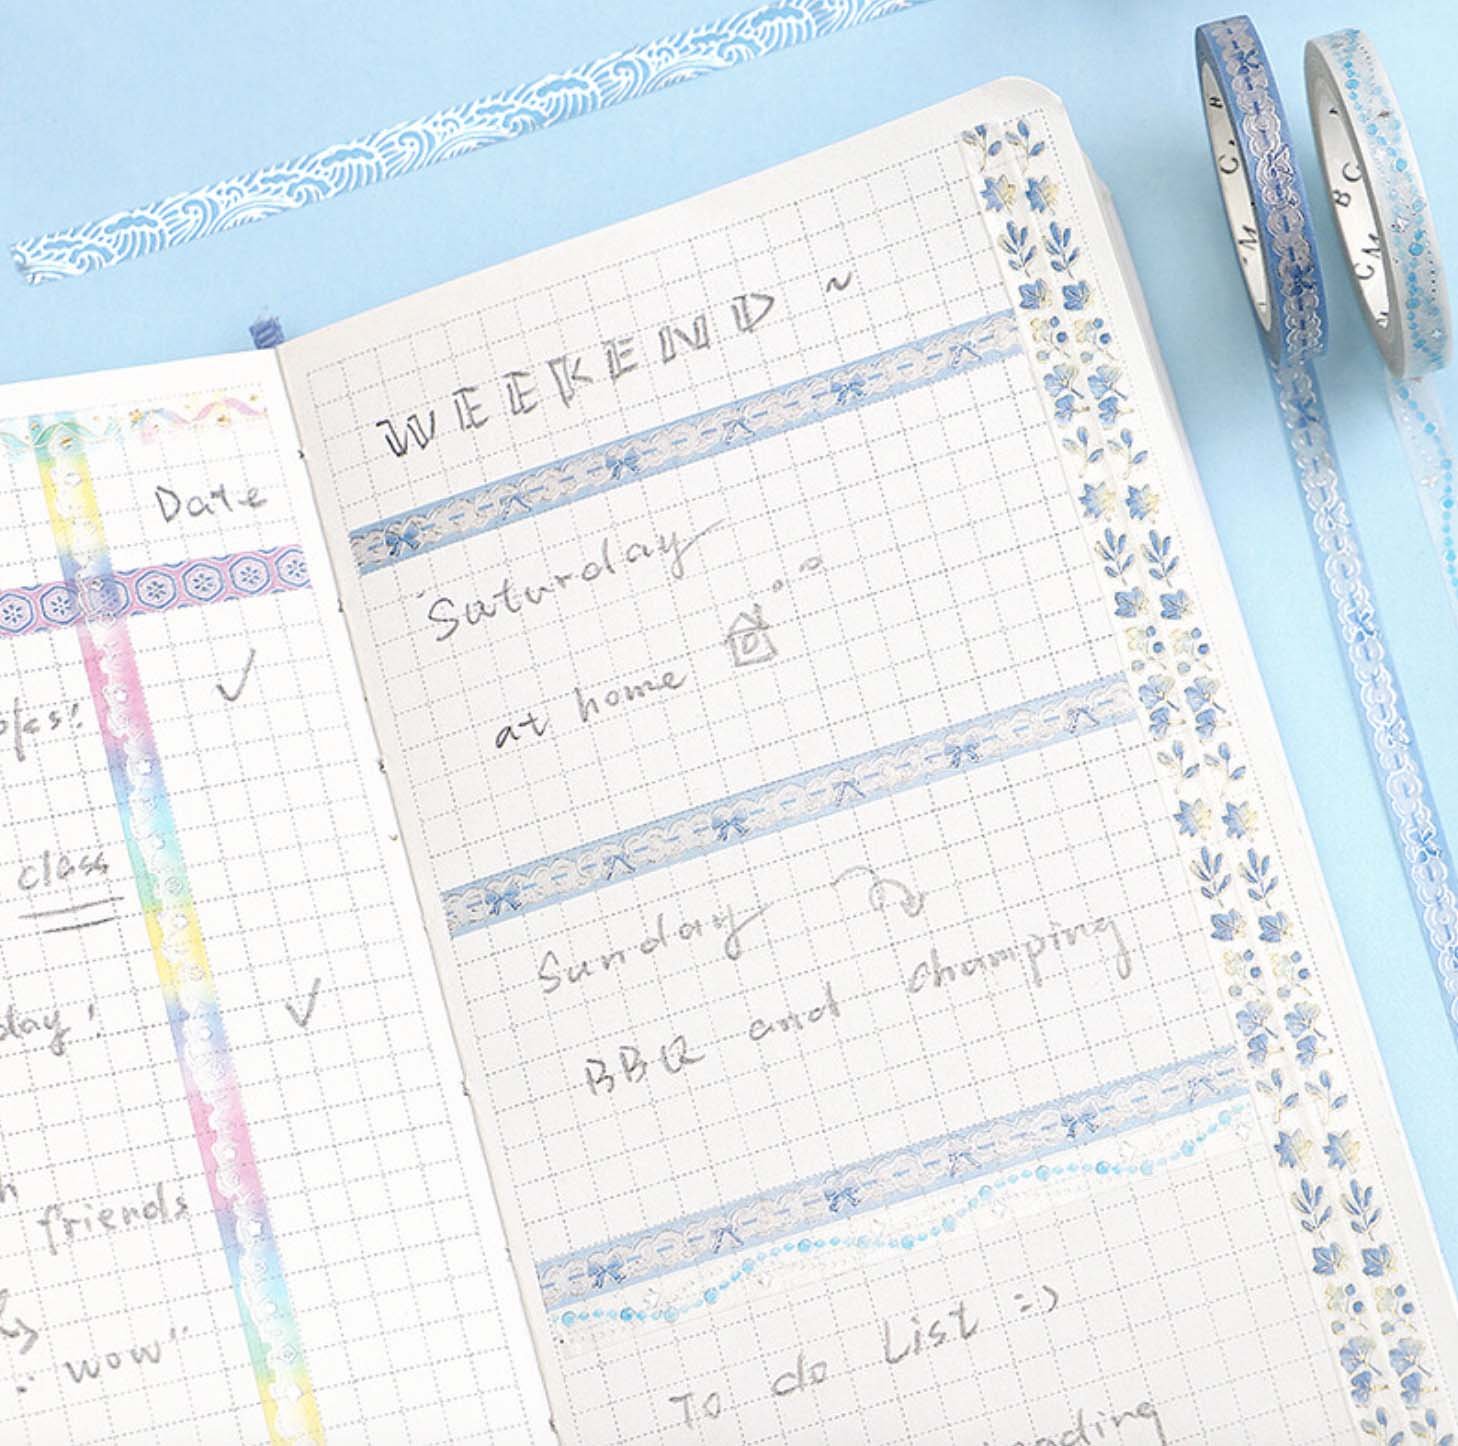 Date
class
day!
friends
wow"
WEEKEND ~
Saturday
at home
Sunday
BBQ and champing
To do List :)
B C. M
B C M C